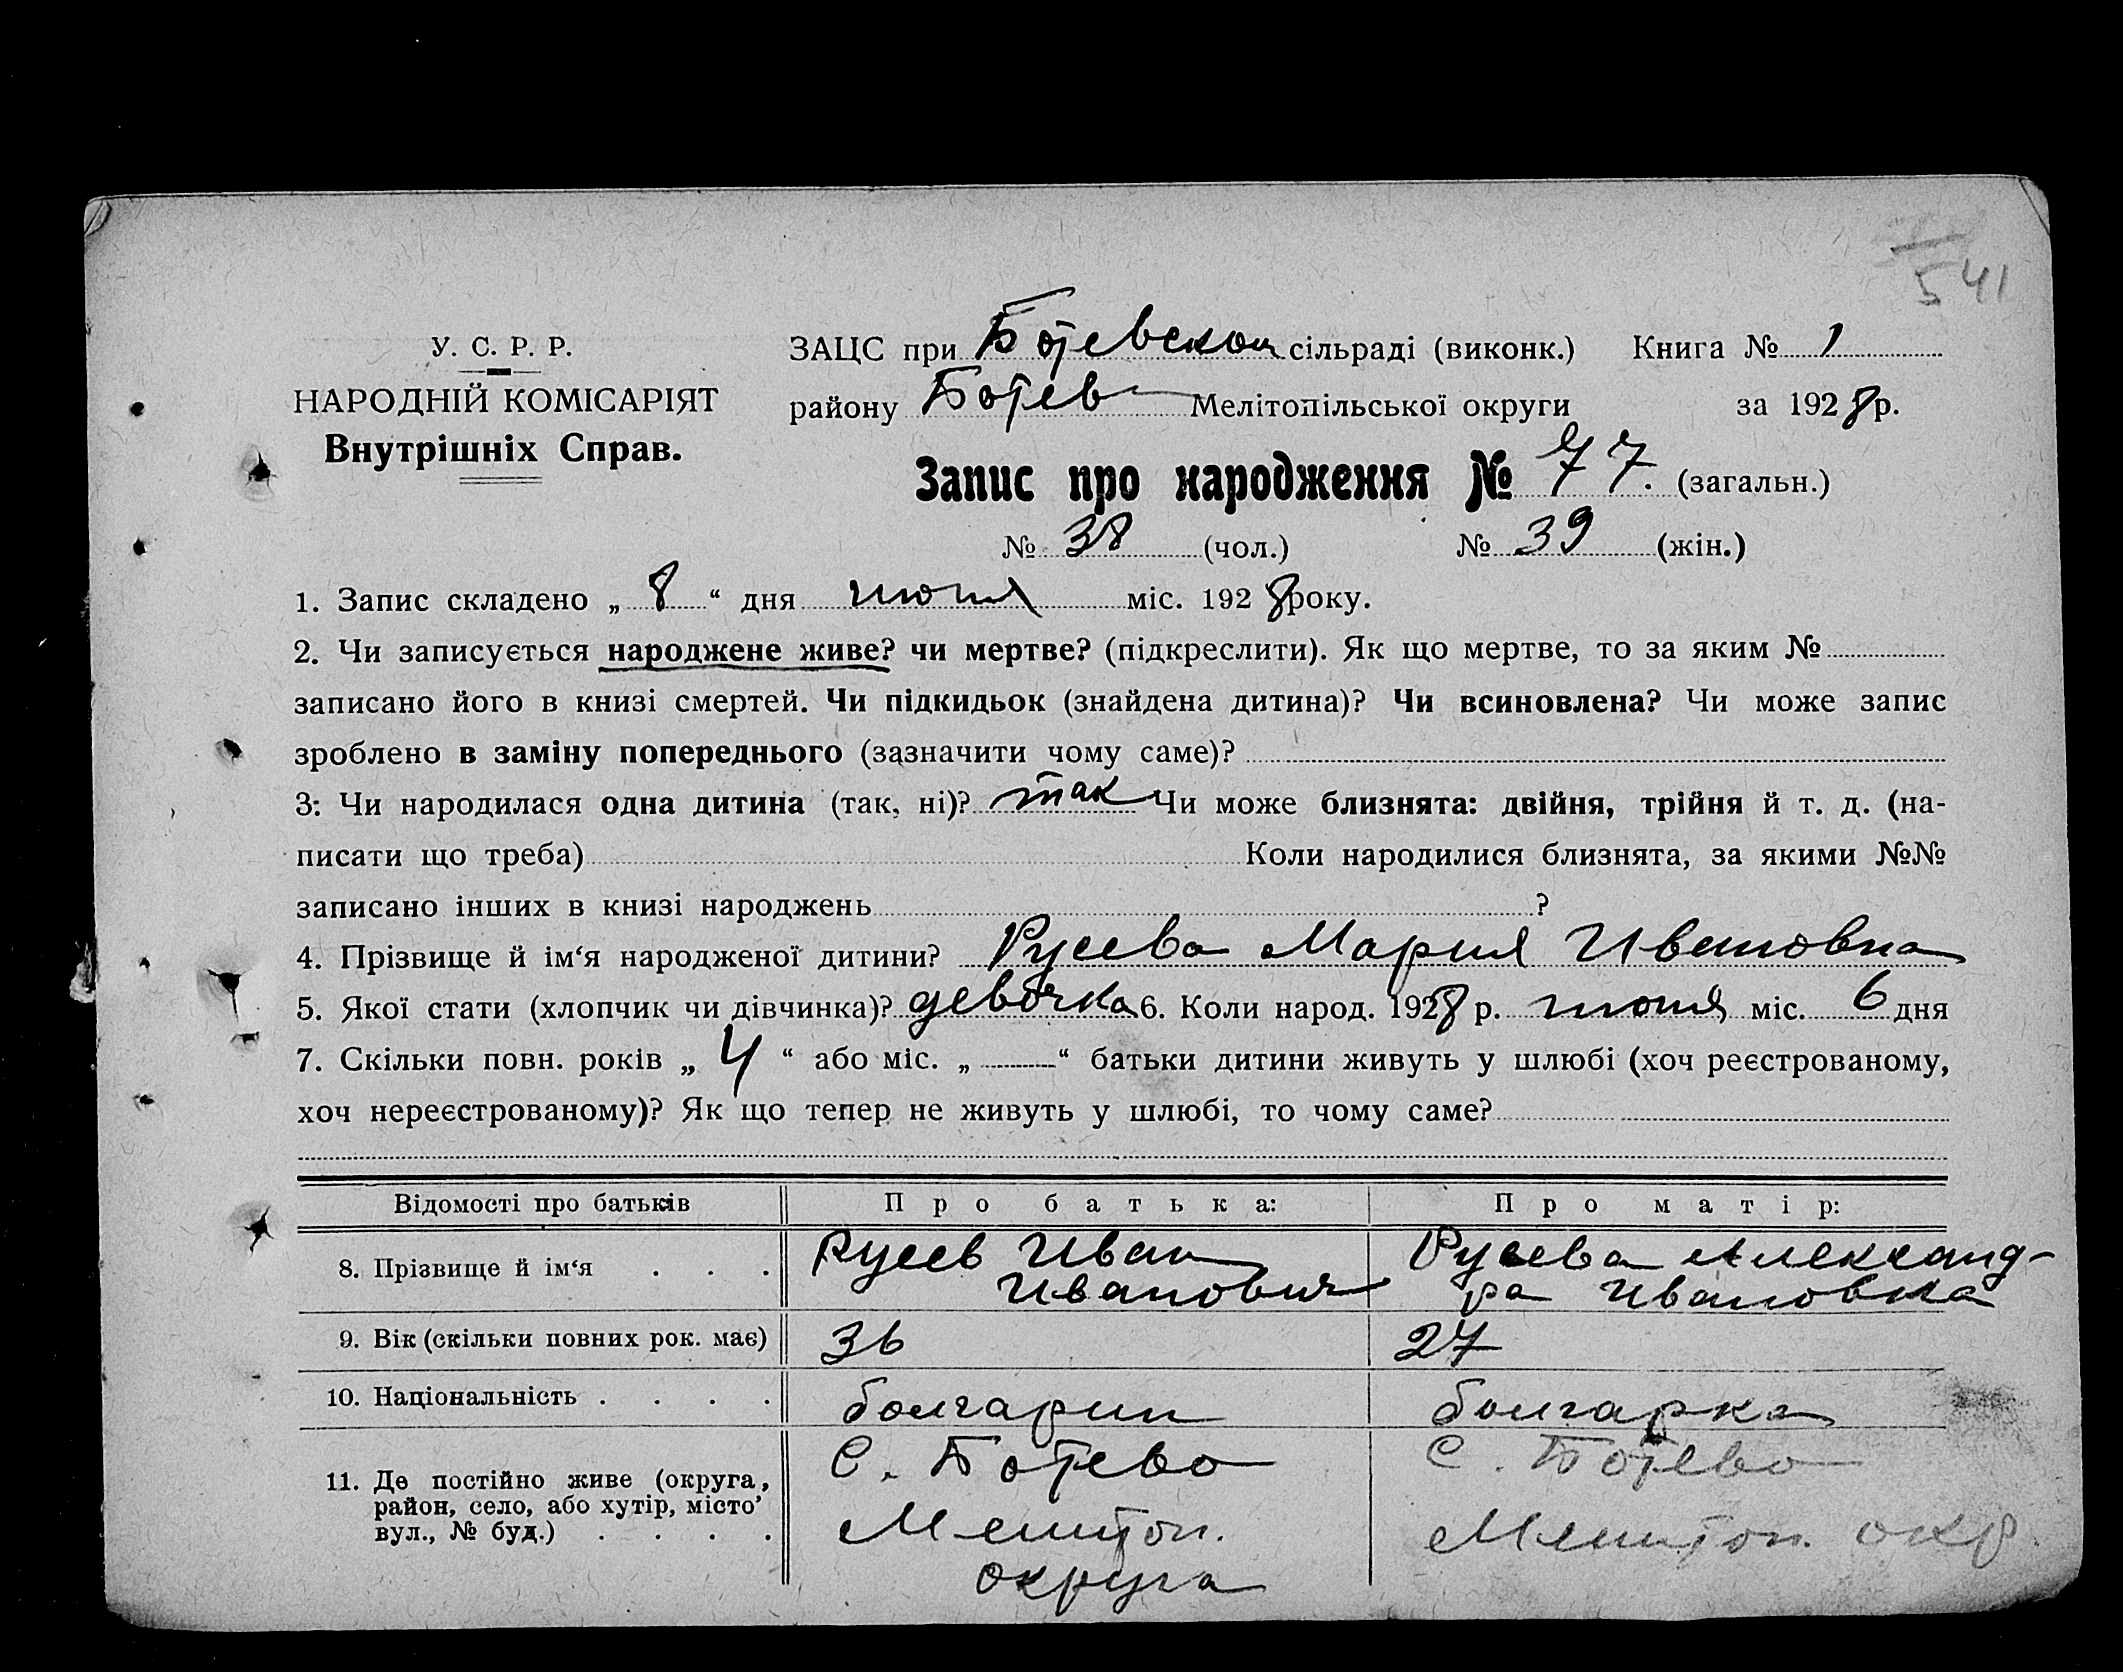 541
У. С. Р. Р.
НАРОДНІЙ КОМІСАРІЯТ
Внутрішніх Справ.
ЗАЦС при Ботевском сільраді (виконк.) Книга № 1
району Ботев Мелітопільської округи за 1928 р.
Запис про народження № 77. (загальн.)
№ 38 (чол.) № 39 (жін.)
1. Запис складено „ 8 “ дня июня міс. 1928 року.
2. Чи записується народжене живе? чи мертве? (підкреслити). Як що мертве, то за яким №
записано його в книзі смертей. Чи підкидьок (знайдена дитина)? Чи всиновлена? Чи може запис
зроблено в заміну попереднього (зазначити чому саме)?
3: Чи народилася одна дитина (так, ні)? так Чи може близнята: двійня, трійня й т. д. (на-
писати що треба) Коли народилися близнята, за якими №№
записано інших в книзі народжень ?
4. Прізвище й ім‘я народженої дитини? Русева Мария Ивановна
5. Якої стати (хлопчик чи дівчинка)? девочка 6. Коли народ. 1928 р. июня міс. 6 дня
7. Скільки повн. років „ 4 “ або міс. „ — “ батьки дитини живуть у шлюбі (хоч реєстрованому,
хоч нереєстрованому)? Як що тепер не живуть у шлюбі, то чому саме?
Відомості про батьків Про батька: Про матір:
8. Прізвище й ім‘я . . . Русев Иван Иванович Русева Александ-
ра Ивановна
9. Вік (скільки повних рок. має) 36 27
10. Національність . . . . болгарин болгарка
11. Де постійно живе (округа, район, село, або хутір, місто’ вул., № буд.) . . . . С. Ботево С. Ботево
Мелитоп. Мелитоп. окр.
округа